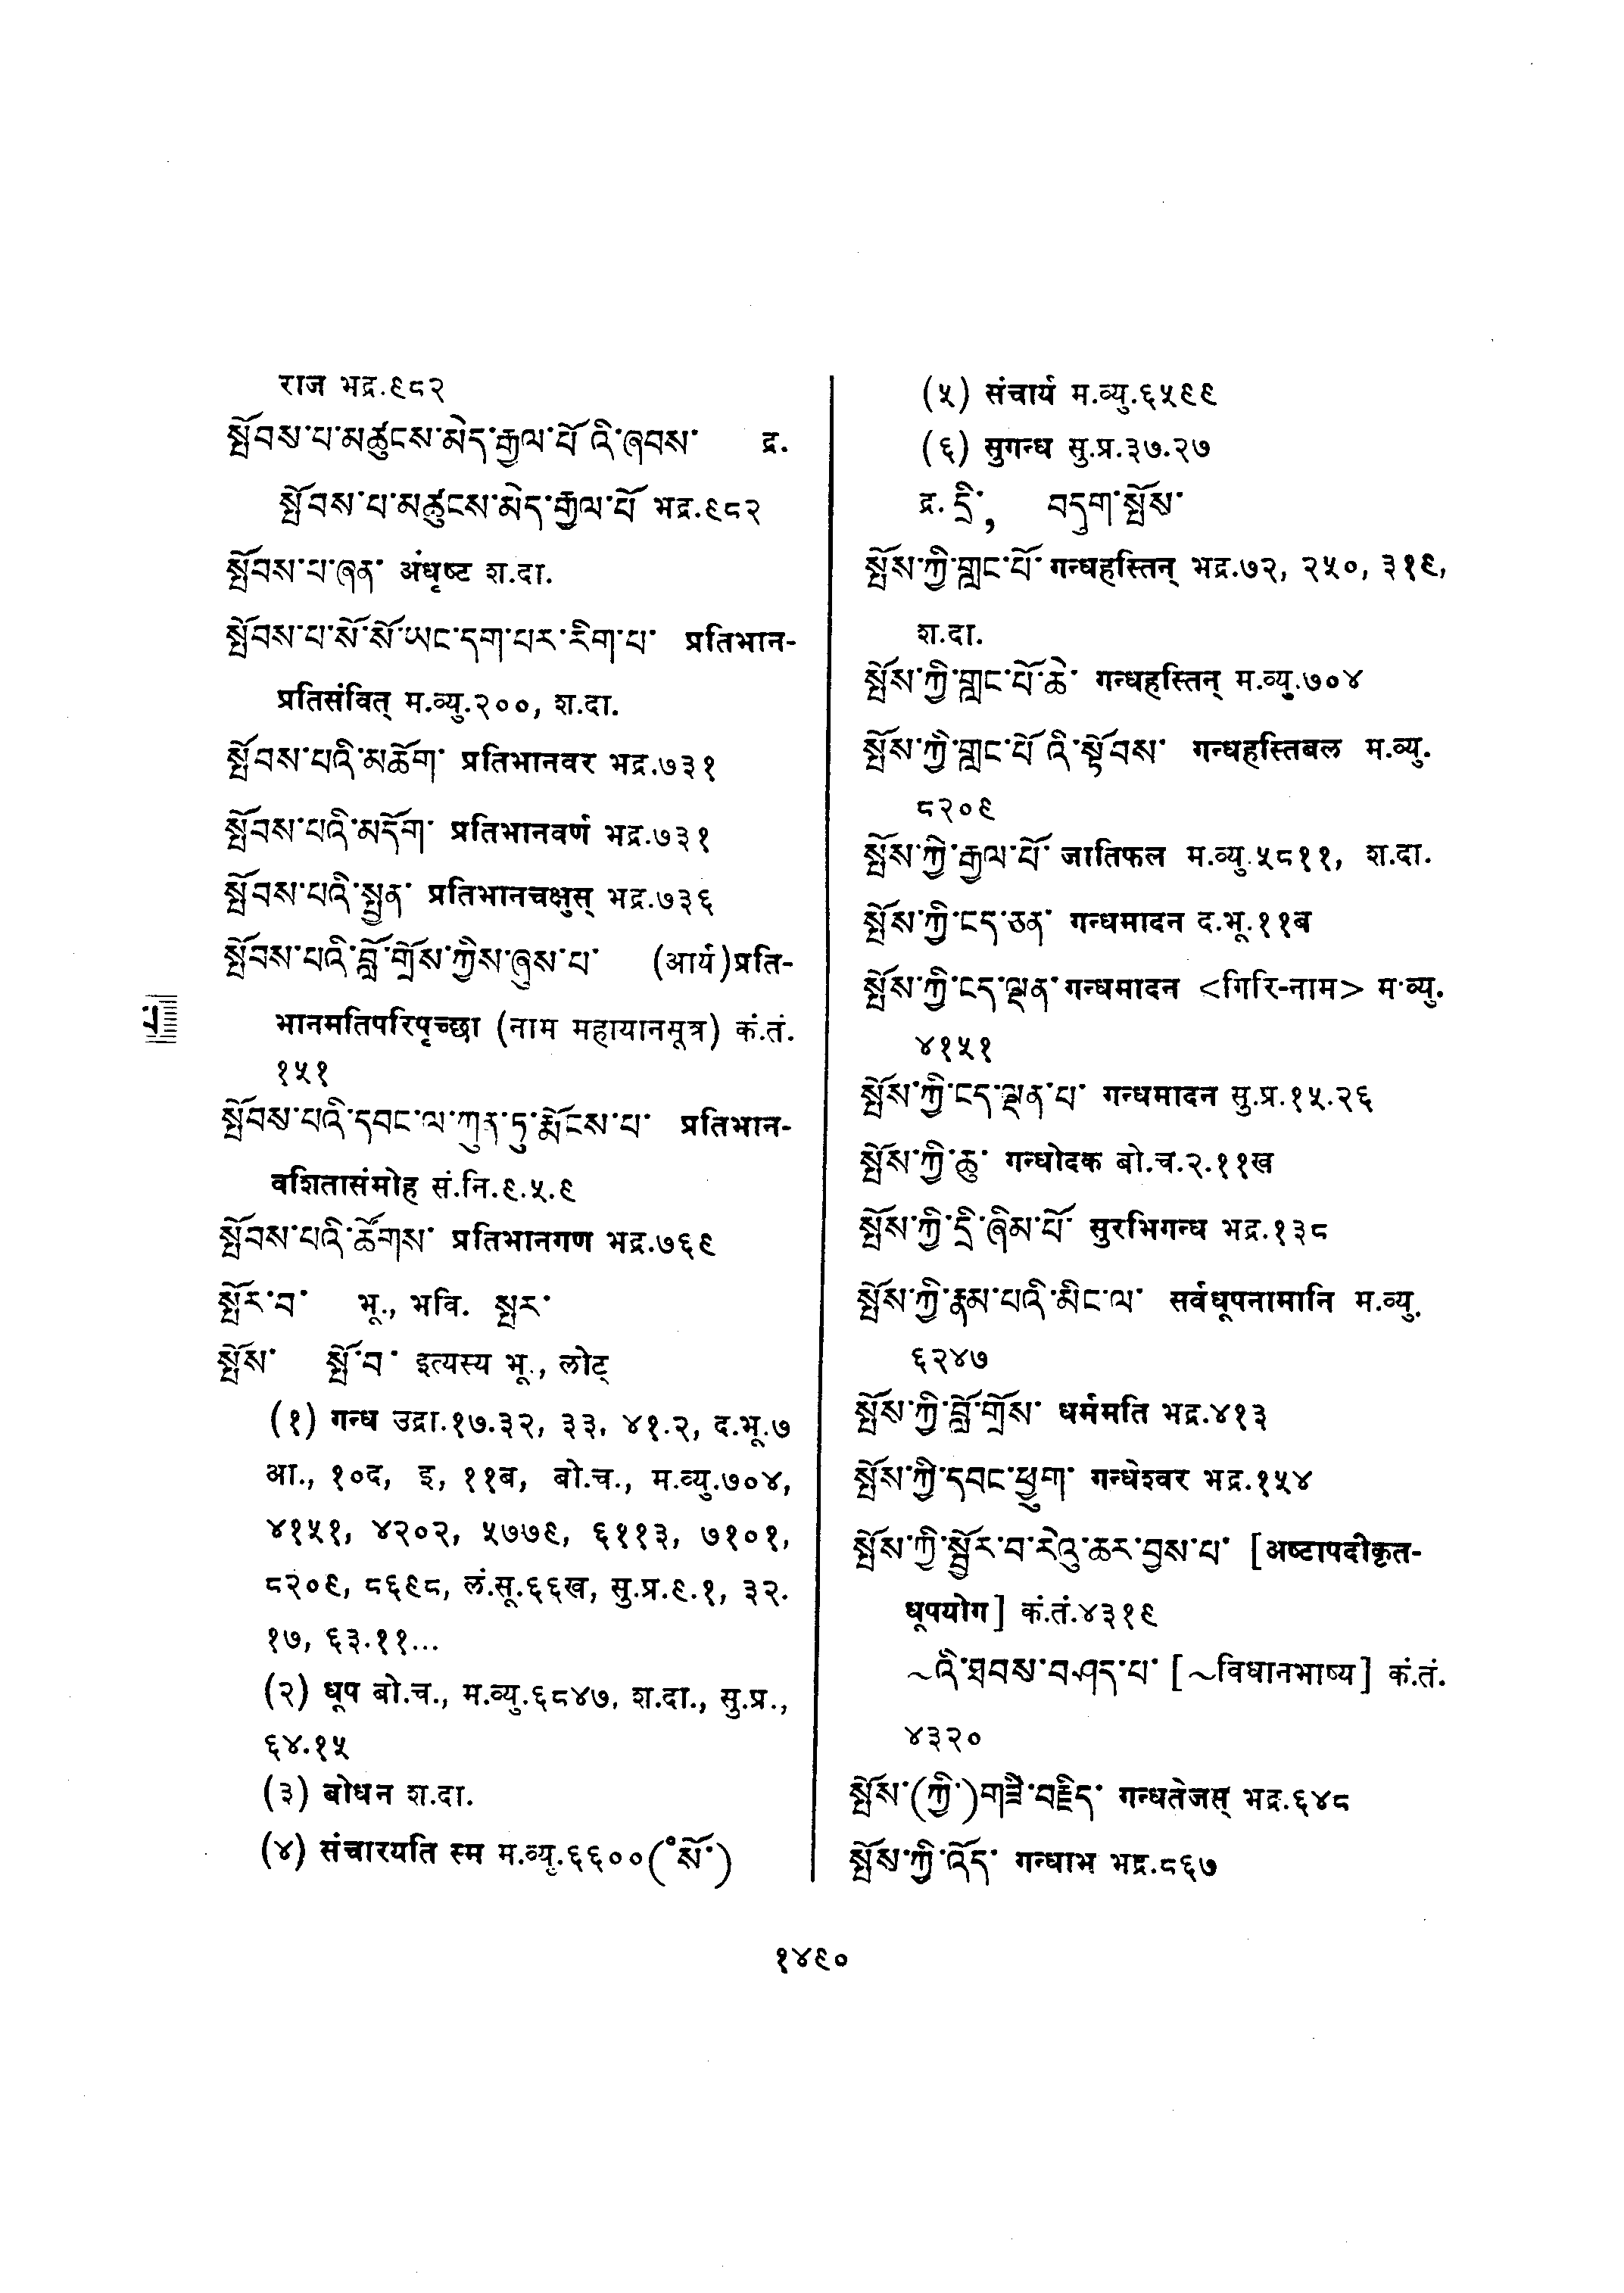 राज भद्र.९८२
སྤོབས་པ་མཚུངས་མེད་རྒྱལ་པོ་འི་ཞབས་ द्र.
སྤོབས་པ་མཚུངས་མེད་རྒྱལ་པོ་ भद्र.९८२
སྤོབས་པ་ཞན་ अंधृष्ट श.दा.
སྤོབས་པ་སོ་སོ་ཡང་དག་པར་རིག་པ་ प्रतिभान-
प्रतिसंवित् म.व्यु.२००, श.दा.
སྤོབས་པའི་མཆོག་ प्रतिभानवर भद्र.७३१
སྤོབས་པའི་མདོག་ प्रतिभानवर्ण भद्र.७३१
སྤོབས་པའི་སྤྱན་ प्रतिभानचक्षुस् भद्र.७३६
སྤོབས་པའི་བློ་གྲོས་ཀྱིས་ཞུས་པ་ (आर्य)प्रति-
भानमतिपरिपृच्छा (नाम महायानसूत्र) कं.तं.
१५१
སྤོབས་པའི་དབང་ལ་ཀུན་ཏུ་རྨོངས་པ་ प्रतिभान-
वशितासंमोह सं.नि.९.५.९
སྤོབས་པའི་ཚོགས་ प्रतिभानगण भद्र.७६९
སྤོར་བ་ भू., भवि. སྤར་
སྤོས་ སྤོ་བ་ इत्यस्य भू., लोट्
(१) गन्ध उद्रा.१७.३२, ३३, ४१.२, द.भू.७
आ., १०द, इ, ११ब, बो.च., म.व्यु.७०४,
४१५१, ४२०२, ५७७९, ६११३, ७१०१,
८२०९, ८६९८, लं.सू.६६ख, सु.प्र.९.१, ३२.
१७, ६३.११...
(२) धूप बो.च., म.व्यु.६८४७, श.दा., सु.प्र.,
६४.१५
(३) बोधन श.दा.
(४) संचारयति स्म म.व्यु.६६००(°སོ་)
པ
(५) संचार्य म.व्यु.६५९९
(६) सुगन्ध सु.प्र.३७.२७
द्र. དྲི་, བདུག་སྤོས་
སྤོས་ཀྱི་གླང་པོ་ गन्धहस्तिन् भद्र.७२, २५०, ३१९,
श.दा.
སྤོས་ཀྱི་གླང་པོ་ཆེ་ गन्धहस्तिन् म.व्यु.७०४
སྤོས་ཀྱི་གླང་པོ་འི་སྟོབས་ गन्धहस्तिबल म.व्यु.
८२०९
སྤོས་ཀྱི་རྒྱལ་པོ་ जातिफल म.व्यु.५८११, श.दा.
སྤོས་ཀྱི་ངད་ཅན་ गन्धमादन द.भू.११ब
སྤོས་ཀྱི་ངད་ལྡན་ गन्धमादन <गिरि-नाम> म.व्यु.
४१५१
སྤོས་ཀྱི་ངད་ལྡན་པ་ गन्धमादन सु.प्र.१५.२६
སྤོས་ཀྱི་ཆུ་ गन्धोदक बो.च.२.११ख
སྤོས་ཀྱི་དྲི་ཞིམ་པོ་ सुरभिगन्ध भद्र.१३८
སྤོས་ཀྱི་རྣམ་པའི་མིང་ལ་ सर्वधूपनामानि म.व्यु.
६२४७
སྤོས་ཀྱི་བློ་གྲོས་ धर्ममति भद्र.४१३
སྤོས་ཀྱི་དབང་ཕྱུག་ गन्धेश्वर भद्र.१५४
སྤོས་ཀྱི་སྦྱོར་བ་རེའུ་ཆར་བྱས་པ་ [अष्टापदीकृत-
धूपयोग] कं.तं.४३१९
~འི་ཐབས་བཤད་པ་ [~विधानभाष्य] कं.तं.
४३२०
སྤོས་(ཀྱི་)གཟི་བརྗིད་ गन्धतेजस् भद्र.६४८
སྤོས་ཀྱི་འོད་ गन्धाभ भद्र.८६७
१४९०